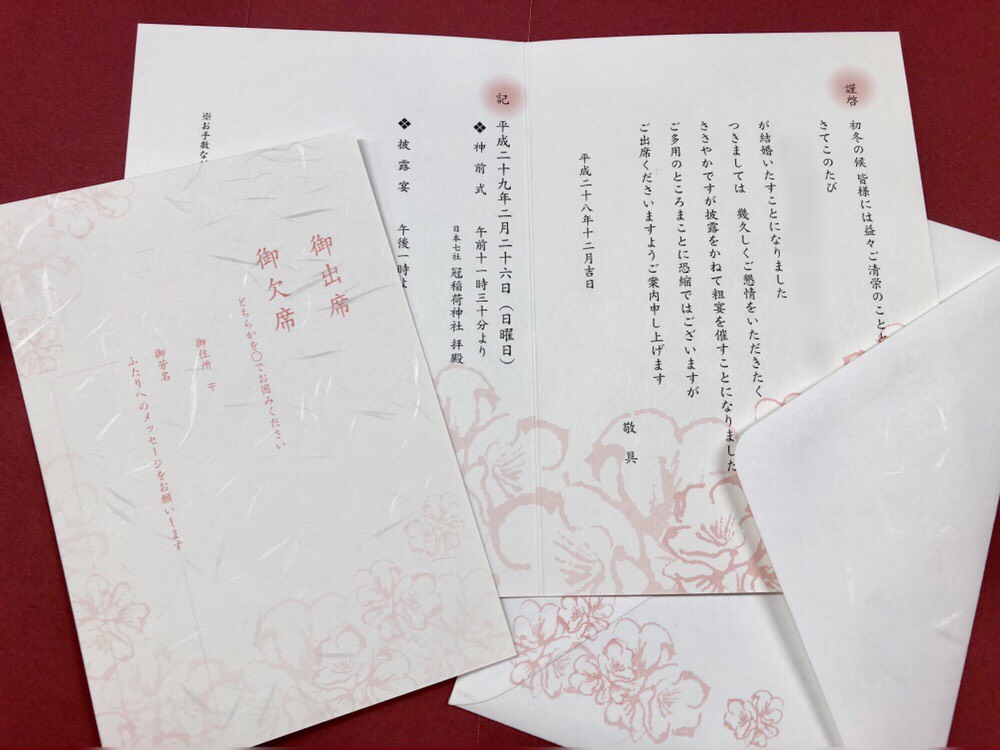 謹啓
初冬の候 皆様には益々ご清栄のことと
さてこのたび
が結婚いたすことになりました
つきましては 幾久しくご懇情をいただきたく
ささやかですが披露をかねて粗宴を催すことになりました
ご多用のところまことに恐縮ではございますが
ご出席くださいますようご案内申し上げます
敬具
平成二十八年十二月吉日
記
平成二十九年二月二十六日（日曜日）
❖ 神前式 午前十一時三十分より
日本七社 冠稲荷神社 拝殿
❖ 披露宴 午後一時よ
※お手数な
御出席
御欠席
どちらかを○でお囲みください
御住所 〒
御芳名
ふたりへのメッセージをお願いします